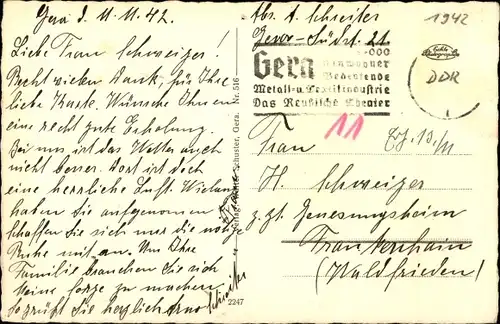 Gera d. 11.11.42.
Liebe Frau Schweizer!
Recht vielen Dank, für Ihre
liebe Karte. Wünsche Ihnen
eine recht gute Erholung.
Bei uns ist das Wetter auch
nicht besser. Dort ist doch
eine herrliche Luft.
haben Sie aufgenommen
schaffen Sie sich nur die nötige
Ruhe mit an. Um Ihre
Familie brauchen Sie sich
keine Sorge zu machen
Es grüßt Sie herzlich Arno Schreiter
Schuster, Gera. Nr. 516
2247
Abs. A. Schreiter
Gera-Süd
21
1942
000
Gera Einwohner
Bedeutende
Metall-u.Textilindustrie
Das Reußische Theater
DDR
11
Frau
H. Schweizer
z.Zt. Genesungsheim
Frankenhain
(Waldfrieden)